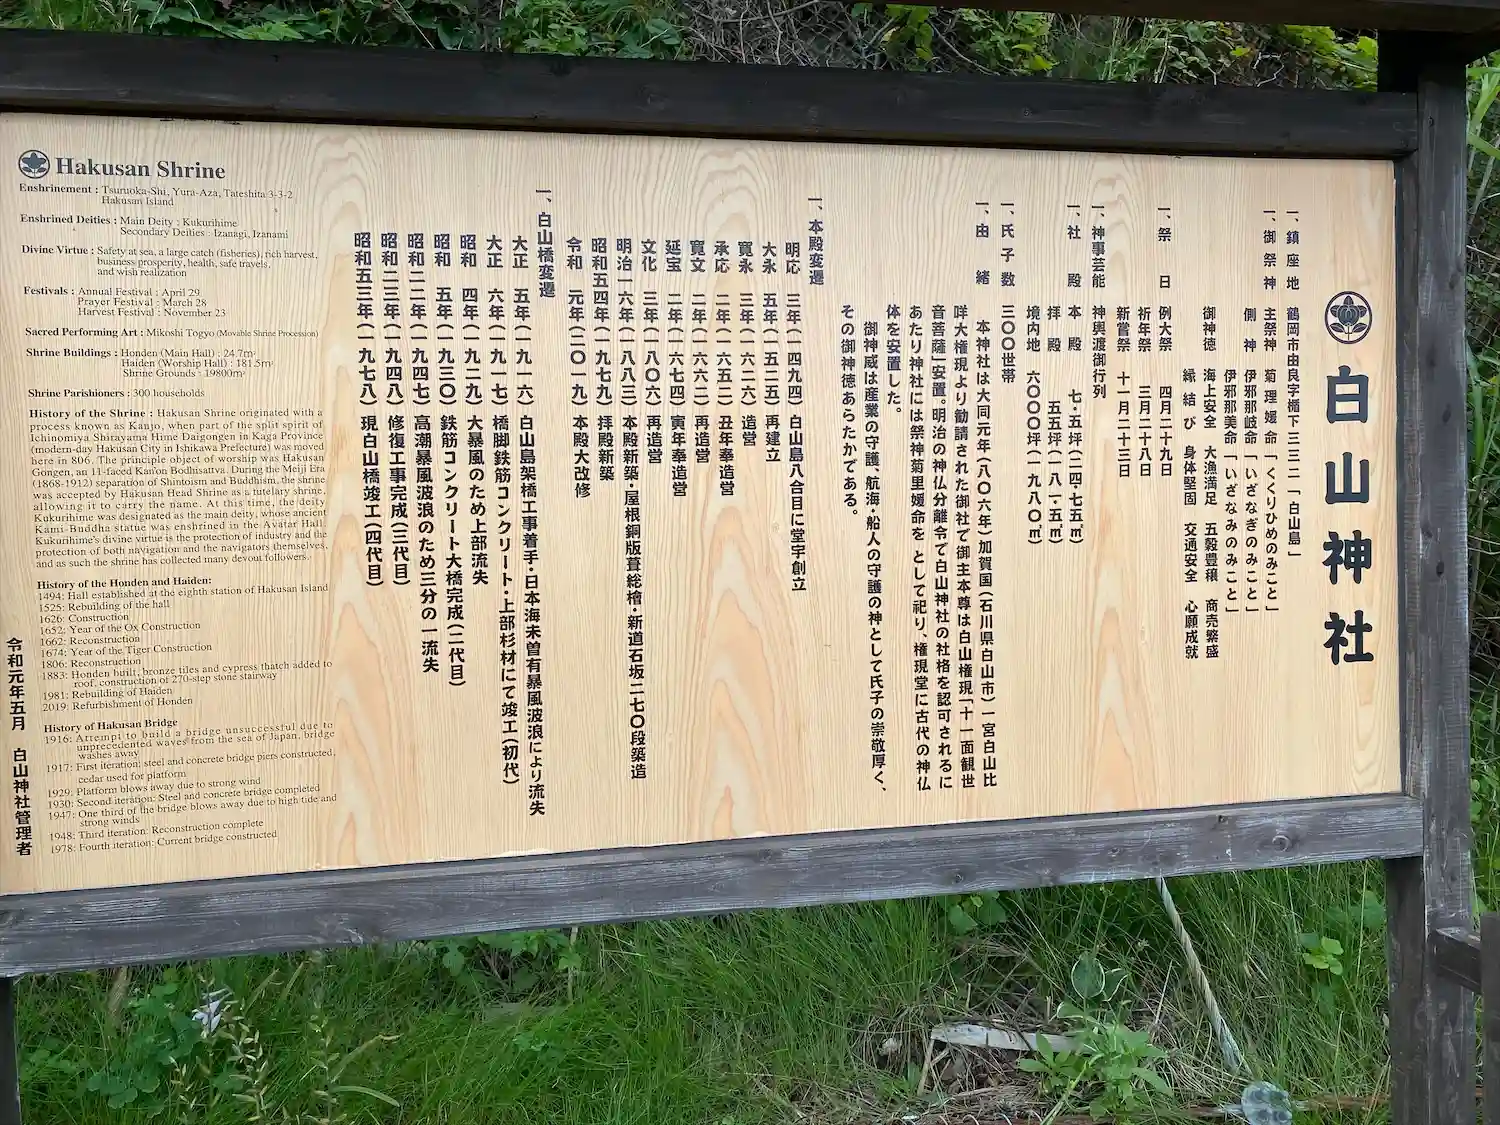 白山神社
一、鎮座地 鶴岡市由良字楯下三ー三ー二「白山島」
一、御祭神 主祭神 菊理媛命「くくりひめのみこと」
側神 伊邪那岐命「いざなぎのみこと」
伊邪那美命「いざなみのみこと」
御神徳 海上安全 大漁満足 五穀豊穣 商売繁盛
縁結び 身体堅固 交通安全 心願成就
一、祭日 例大祭 四月二十九日
祈年祭 三月二十八日
新嘗祭 十一月二十三日
一、神事芸能 神輿渡御行列
一、社殿 本殿 七・五坪(二四・七五㎡)
拝殿 五五坪(一八一・五㎡)
境内地 六〇〇〇坪(一九八〇㎡)
一、氏子数 三〇〇世帯
一、由緒 本神社は大同元年(八〇六年)加賀国(石川県白山市)一宮白山比
咩大権現より勧請された御社で御主本尊は白山権現「十一面観世
音菩薩」安置。明治の神仏分離令で白山神社の社格を認可されるに
あたり神社には祭神菊里媛命を として祀り、権現堂に古代の神仏
体を安置した。
御神威は産業の守護、航海・船人の守護の神として氏子の崇敬厚く、
その御神徳あらたかである。
一、本殿変遷
明応 三年(一四九四)白山島八合目に堂宇創立
大永 五年(一五二五)再建立
寛永 三年(一六二六)造営
承応 二年(一六五二)丑年奉造営
寛文 二年(一六六二)再造営
延宝 二年(一六七四)寅年奉造営
文化 三年(一八〇六)再造営
明治一六年(一八八三)本殿新築・屋根銅版葺総檜・新道石坂二七〇段築造
昭和五四年(一九七九)拝殿新築
令和 元年(二〇一九)本殿大改修
一、白山橋変遷
大正 五年(一九一六)白山島架橋工事着手・日本海未曽有暴風波浪により流失
大正 六年(一九一七)橋脚鉄筋コンクリート・上部杉材にて竣工(初代)
昭和 四年(一九二九)大暴風のため上部流失
昭和 五年(一九三〇)鉄筋コンクリート大橋完成(二代目)
昭和二二年(一九四七)高潮暴風波浪のため三分の一流失
昭和二三年(一九四八)修復工事完成(三代目)
昭和五三年(一九七八)現白山橋竣工(四代目)
Hakusan Shrine
Enshrinement : Tsuruoka-Shi, Yura-Aza, Tateshita 3-3-2
Hakusan Island
Enshrined Deities : Main Deity : Kukurihime
Secondary Deities : Izanagi, Izanami
Divine Virtue : Safety at sea, a large catch (fisheries), rich harvest,
business prosperity, health, safe travels,
and wish realization
Festivals : Annual Festival : April 29
Prayer Festival : March 28
Harvest Festival : November 23
Sacred Performing Art : Mikoshi Togyo (Movable Shrine Procession)
Shrine Buildings : Honden (Main Hall) : 24.7m²
Haiden (Worship Hall) : 181.5m²
Shrine Grounds : 19800m²
Shrine Parishioners : 300 households
History of the Shrine : Hakusan Shrine originated with a
process known as Kanjo, when part of the split spirit of
Ichinomiya Shirayama Hime Daigongen in Kaga Province
(modern-day Hakusan City in Ishikawa Prefecture) was moved
here in 806. The principle object of worship was Hakusan
Gongen, an 11-faced Kan'on Bodhisattva. During the Meiji Era
(1868-1912) separation of Shintoism and Buddhism, the shrine
was accepted by Hakusan Head Shrine as a tutelary shrine,
allowing it to carry the name. At this time, the deity
Kukurihime was designated as the main deity, whose ancient
Kami-Buddha statue was enshrined in the Avatar Hall.
Kukurihime's divine virtue is the protection of industry and the
protection of both navigation and the navigators themselves,
and as such the shrine has collected many devout followers.
History of the Honden and Haiden:
1494: Hall established at the eighth station of Hakusan Island
1525: Rebuilding of the hall
1626: Construction
1652: Year of the Ox Construction
1662: Reconstruction
1674: Year of the Tiger Construction
1806: Reconstruction
1883: Honden built, bronze tiles and cypress thatch added to
roof, construction of 270-step stone stairway
1981: Rebuilding of Haiden
2019: Refurbishment of Honden
History of Hakusan Bridge
1916: Attempt to build a bridge unsuccessful due to
unprecedented waves from the sea of Japan, bridge
washes away
1917: First iteration; steel and concrete bridge piers constructed,
cedar used for platform
1929: Platform blows away due to strong wind
1930: Second iteration: Steel and concrete bridge completed
1947: One third of the bridge blows away due to high tide and
strong winds
1948: Third iteration: Reconstruction complete
1978: Fourth iteration: Current bridge constructed
令和元年五月 白山神社管理者